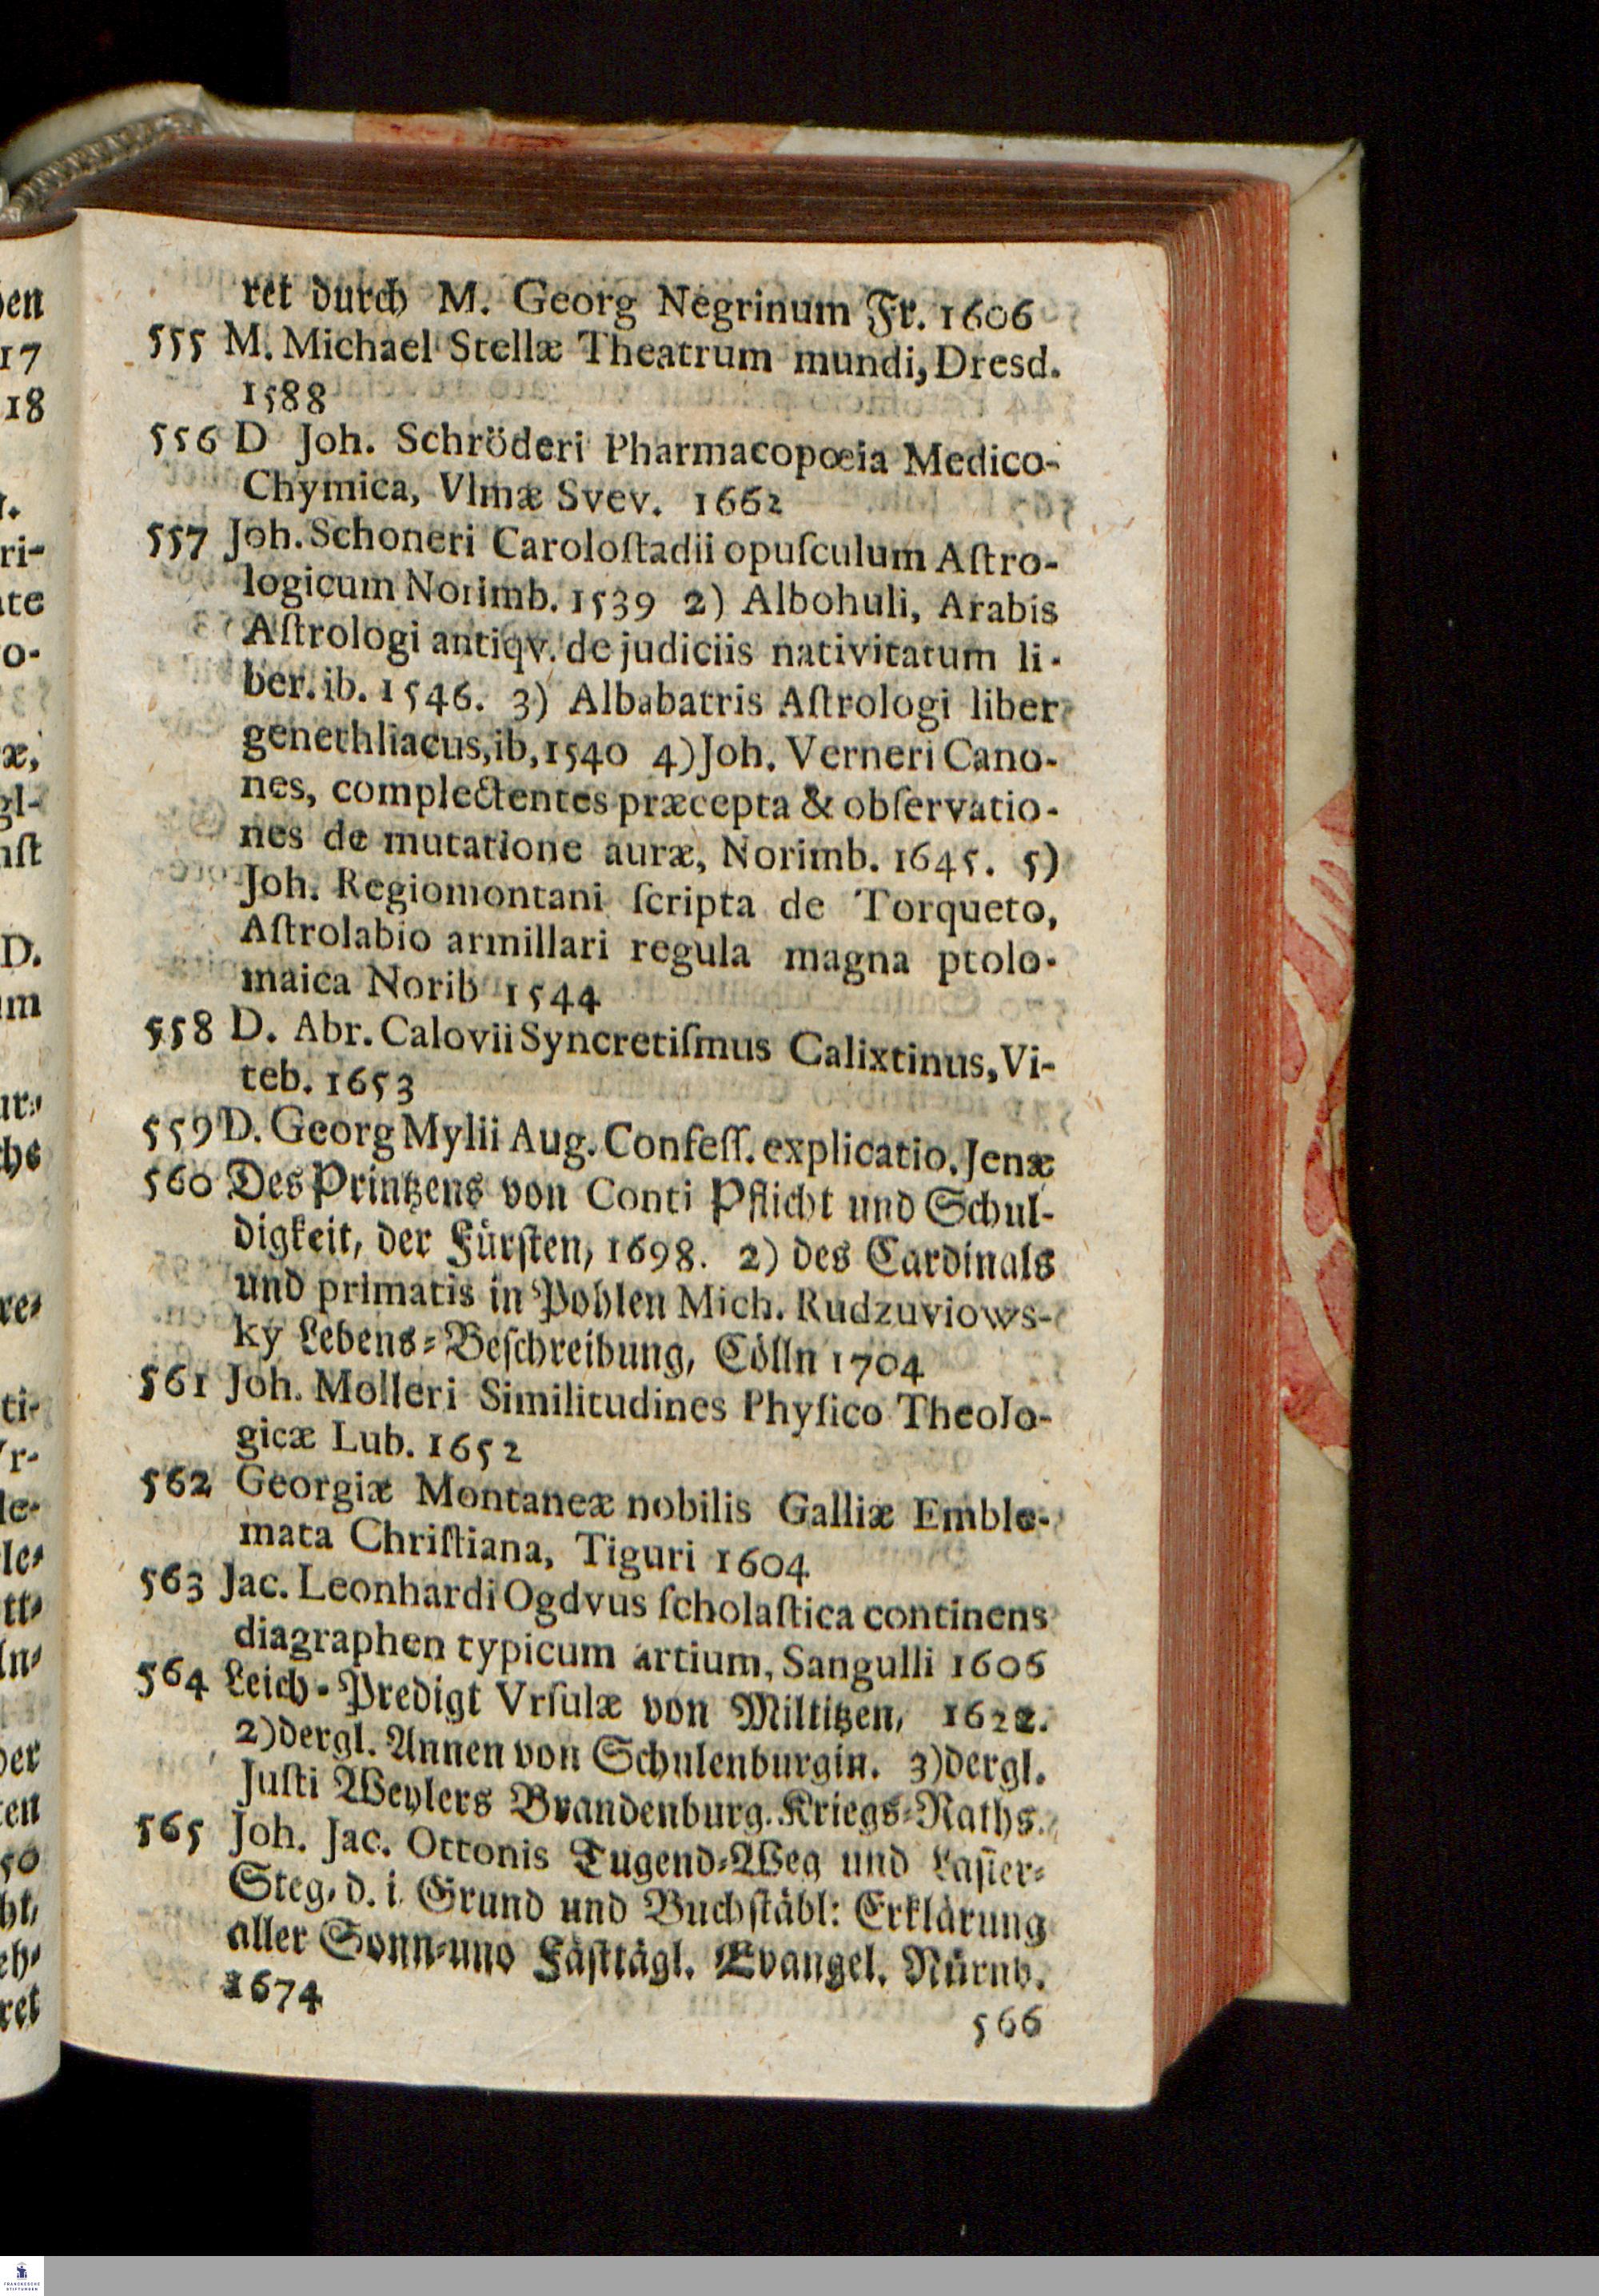 ret durch M. Georg Negrinum Fr. 1606
555 M. Michael Stellæ Theatrum mundi, Dresd.
1588
556 D Joh. Schröderi Pharmacopœia Medico-
Chymica, Vlmæ Svev. 1662
557 Joh. Schoneri Caroloſtadii opuſculum Aſtro-
logicum Norimb. 1539 2) Albohuli, Arabis
Aſtrologi antiqv. de judiciis nativitatum li-
ber. ib. 1546. 3) Albabatris Aſtrologi liber
genethliacus, ib, 1540 4) Joh. Verneri Cano-
nes, complectentes præcepta & obſervatio-
nes de mutatione auræ, Norimb. 1645. 5)
Joh. Regiomontani ſcripta de Torqueto,
Aſtrolabio armillari regula magna ptolo-
maica Norib 1544
558 D. Abr. Calovii Syncretiſmus Calixtinus, Vi-
teb. 1653
559 D. Georg Mylii Aug. Confeſſ. explicatio. Jenæ
560 Des Printzens von Conti Pflicht und Schul-
digkeit, der Fürſten, 1698. 2) des Cardinals
und primatis in Pohlen Mich. Rudzuviows-
ky Lebens-Beſchreibung, Cölln 1704
561 Joh. Molleri Similitudines Phyſico Theolo-
gicæ Lub. 1652
562 Georgiæ Montaneæ nobilis Galliæ Emble-
mata Chriſtiana, Tiguri 1604
563 Jac. Leonhardi Ogdvus ſcholaſtica continens
diagraphen typicum artium, Sangulli 1606
564 Leich-Predigt Vrſulæ von Miltitzen, 1622.
2) dergl. Annen von Schulenburgin. 3) dergl.
Juſti Weylers Brandenburg. Kriegs-Raths.
565 Joh. Jac. Ottonis Tugend-Weg und Laſter-
Steg, d. i. Grund und Buchſtäbl: Erklärung
aller Sonn-und Fäſttägl. Evangel. Nürnb.
1674
566